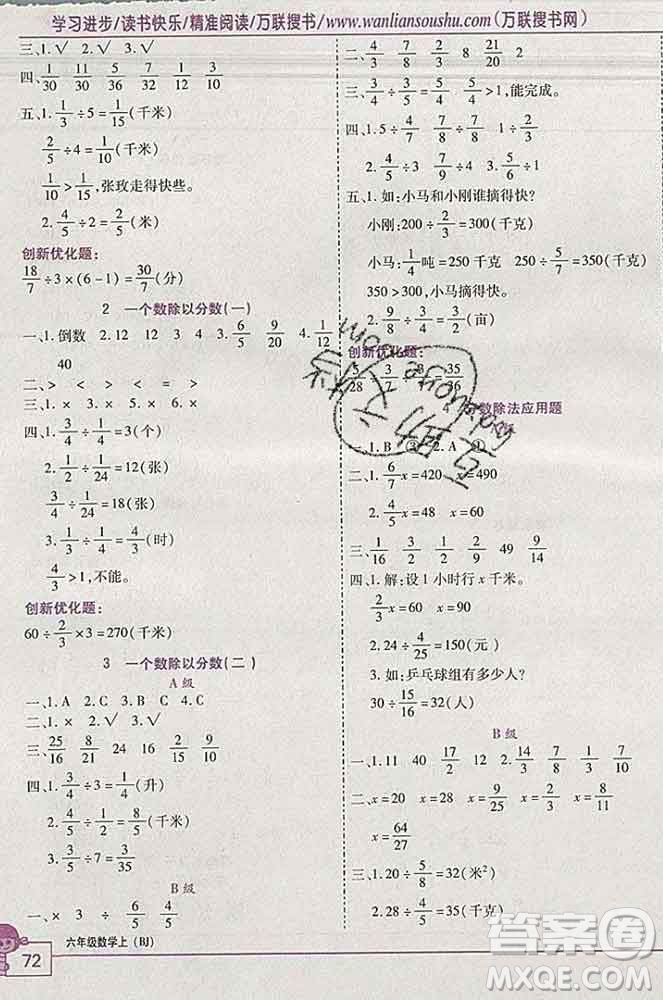 学习进步/读书快乐/精准阅读/万联搜书/www.wanliansoushu.com(万联搜书网)
三、1.√ 2.√ 3.√
四、1/30 11/30 5/12 7/32 1/12 13/30
五、1. 1/3÷5=1/15(千米)
2/5÷4=1/10(千米)
1/10>1/15,张玫走得快些。
2. 4/5÷2=2/5(米)
创新优化题:
18/7÷3×(6-1)=30/7(分)
2 一个数除以分数(一)
一、1.倒数 2.12 12 3 4 3. 6/5 9/20 4. 1/12
40
二、> < > = < =
三、1.× 2.× 3.× 4.×
四、1. 1/4÷1/12=3(个)
1/2÷1/24=12(张)
3/4÷1/24=18(张)
2. 1/3÷1/4=4/3(时)
4/3>1,不能。
创新优化题:
60÷2/3×3=270(千米)
3 一个数除以分数(二)
A 级
一、1.A 2.C 3.B 4.C
二、1.× 2.√ 3.√
三、25/16 8/21 24 16 2/15 7/9
四、1. 3/4÷3=1/4(升)
2. 4/5÷1/2=8/5(千米)
3. 3/5÷7=3/35
B 级
一、× 3 ÷ 6/5 4/5
六年级数学上(BJ)
72
二、4/3 3/7 2/7 8 21/20 2
三、3/4÷3/5=5/4 5/4>1,能完成。
四、1.5÷5/4 7/8÷7/8 1÷1/2
2. 4/5÷2/3 7/9÷4 5÷5/4
五、1.如:小马和小刚谁摘得快?
小刚:200÷2/3=300(千克)
小马:1/4吨=250千克 250÷5/7=350(千克)
350>300,小马摘得快。
2. 9/8÷3/4=3/2(亩)
创新优化题:
5/28÷3/7 35/36
数除法应用题
1.B ③ 2.A ①
二、1. 6/7x=420 x=490
2. 4/5x=48 x=60
三、1/16 3/32 2/9 1/12 49 9/14
四、1.解:设1小时行x千米。
2/3x=60 x=90
2.24÷4/25=150(元)
3.如:乒乓球组有多少人?
30÷15/16=32(人)
B 级
一、1.11 40 17/2 2. 14/3 7/8 1/5 7/10
二、x=20 x=28 x=9/25 x=8/11
x=64/27
三、1.20÷5/8=32(米²)
2.28÷4/5=35(千克)
答案圈
MXQE.COM